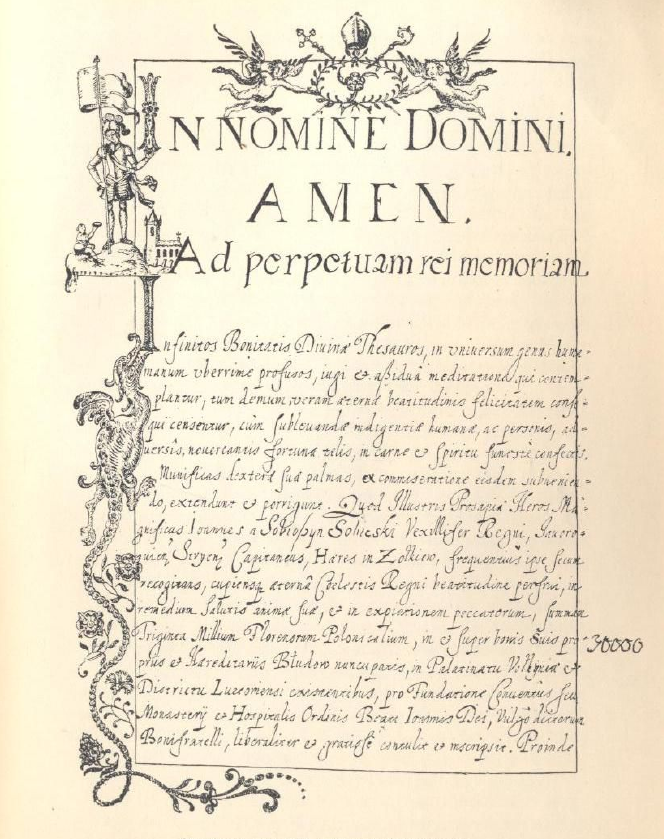 IN NOMINE DOMINI.
AMEN.
Ad perpetuam rei memoriam
Infinitos Bonitatis Divinæ Thesauros, in vniversum genus huma-
manum vberrime profusos, iugi & aßidua meditatione qui contem-
plantur, tum demum veram æternæ beatitudinis felicitatem conse-
qui censentur, cùm sublevandæ indigentiæ humanæ, ac personis, ad-
versis, novercantis fortunæ telis, in carne & spiritu funeste confectis.
Munificas dexteræ suæ palmas, ex commiseratione eisdem subvenien-
do, extendunt & porrigunt. Quod Illustris Prosapiæ Heros Ma-
gnificus Ioannes a Sobieszyn Sobieski Vexillifer Regni, Iavoro-
Capitaneus, Hæres in Zolkiew, frequentius ipse secum
recogitans, cupiensq æterna Cœlestis Regni beatitudine perfrui, in
remedium salutis animæ suæ, & in expiationem peccatorum, summam
Triginta Millium Florenorum Polonicalium, in & super bonis suis pro-
30000
prijs & Hæreditarijs Błudow nuncupatis, in Palatinatu Volhyniæ &
Districtu Luceoriensi existentibus, pro Fundatione Conventus seu
Monasterij & Hospitalis Ordinis Beati Ioannis Dei, Vulgo dictorum
Bonifratelli, liberaliter & gratiose contulit & inscripsit. Proinde